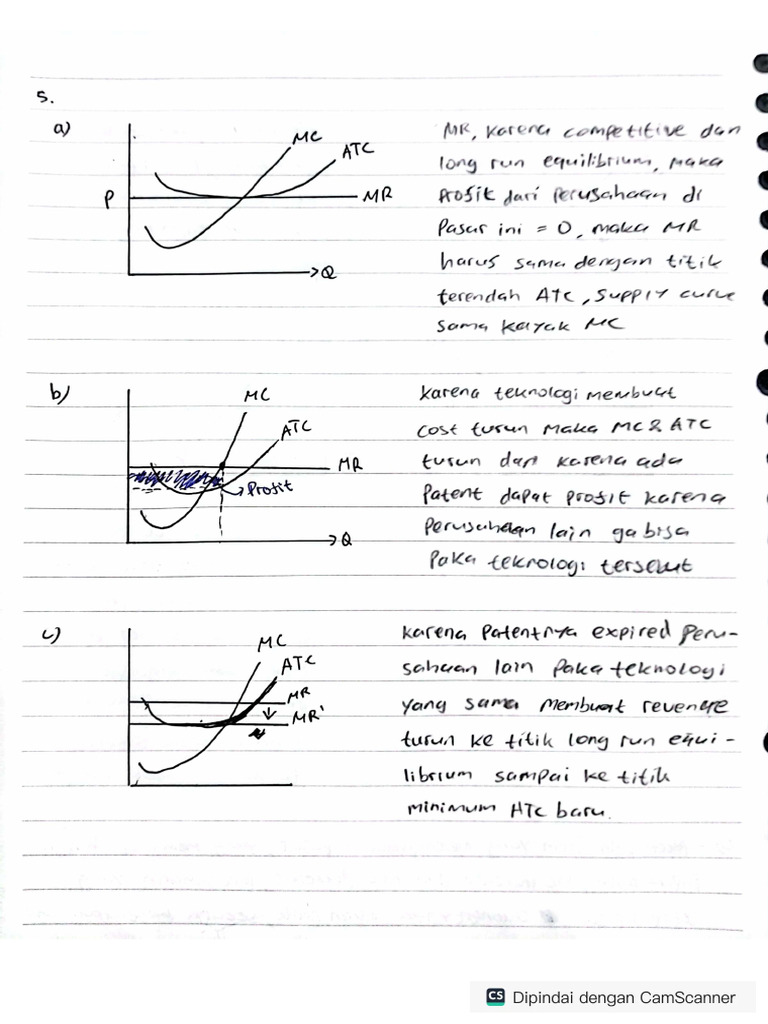 5.
a)
MC
ATC
P
MR
Q
MR, karena competitive dan
long run equilibrium, maka
Profit dari perusahaan di
Pasar ini = 0, maka MR
harus sama dengan titik
terendah ATC, supply curve
sama kayak MC
b)
MC
ATC
MR
Profit
Q
karena teknologi membuat
cost turun maka MC & ATC
turun dan karena ada
Patent dapat profit karena
Perusahaan lain ga bisa
Paka teknologi tersebut
c)
MC
ATC
MR
MR'
karena Patentnya expired Peru-
sahaan lain Paka teknologi
yang sama membuat revenue
turun ke titik long run equi-
librium sampai ke titik
minimum ATC baru.
CS Dipindai dengan CamScanner